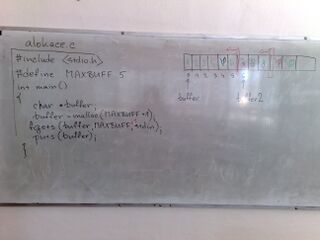 alokace.c
#include <stdio.h>
#define MAXBUFF 5
int main()
{
char *buffer;
buffer = malloc(MAXBUFF+1);
fgets(buffer,MAXBUFF,stdin);
puts(buffer);
}
0 1 2 3 4 5
buffer
buffer2